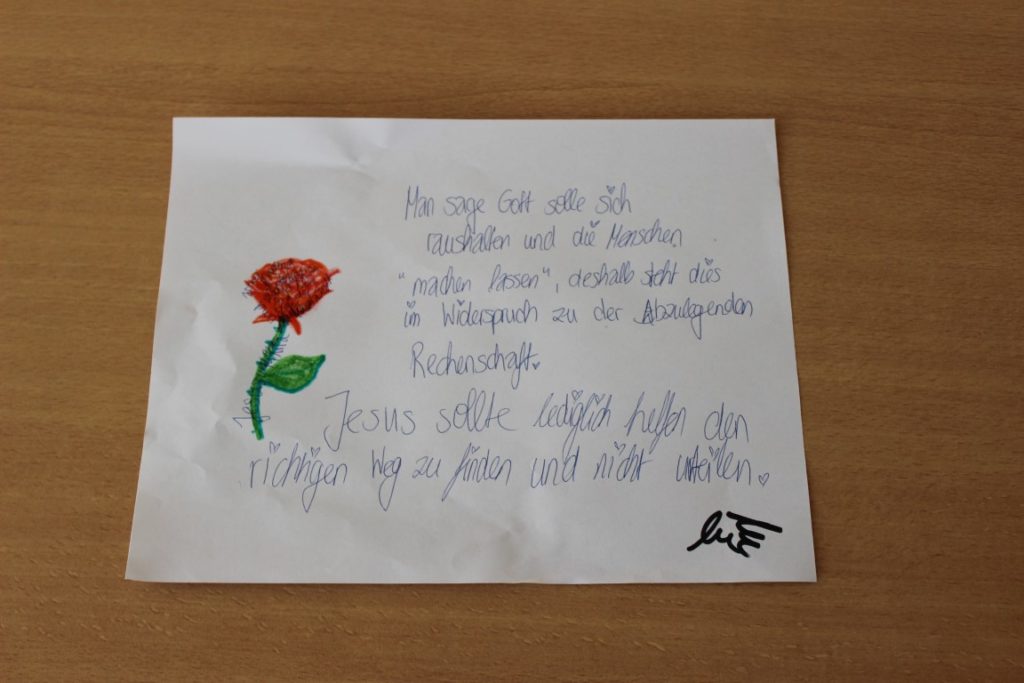 Man sage Gott solle sich
raushalten und die Menschen
"machen lassen", deshalb steht dies
im Widerspruch zu der Abzulegenden
Rechenschaft.
Jesus sollte lediglich helfen den
richtigen Weg zu finden und nicht urteilen.